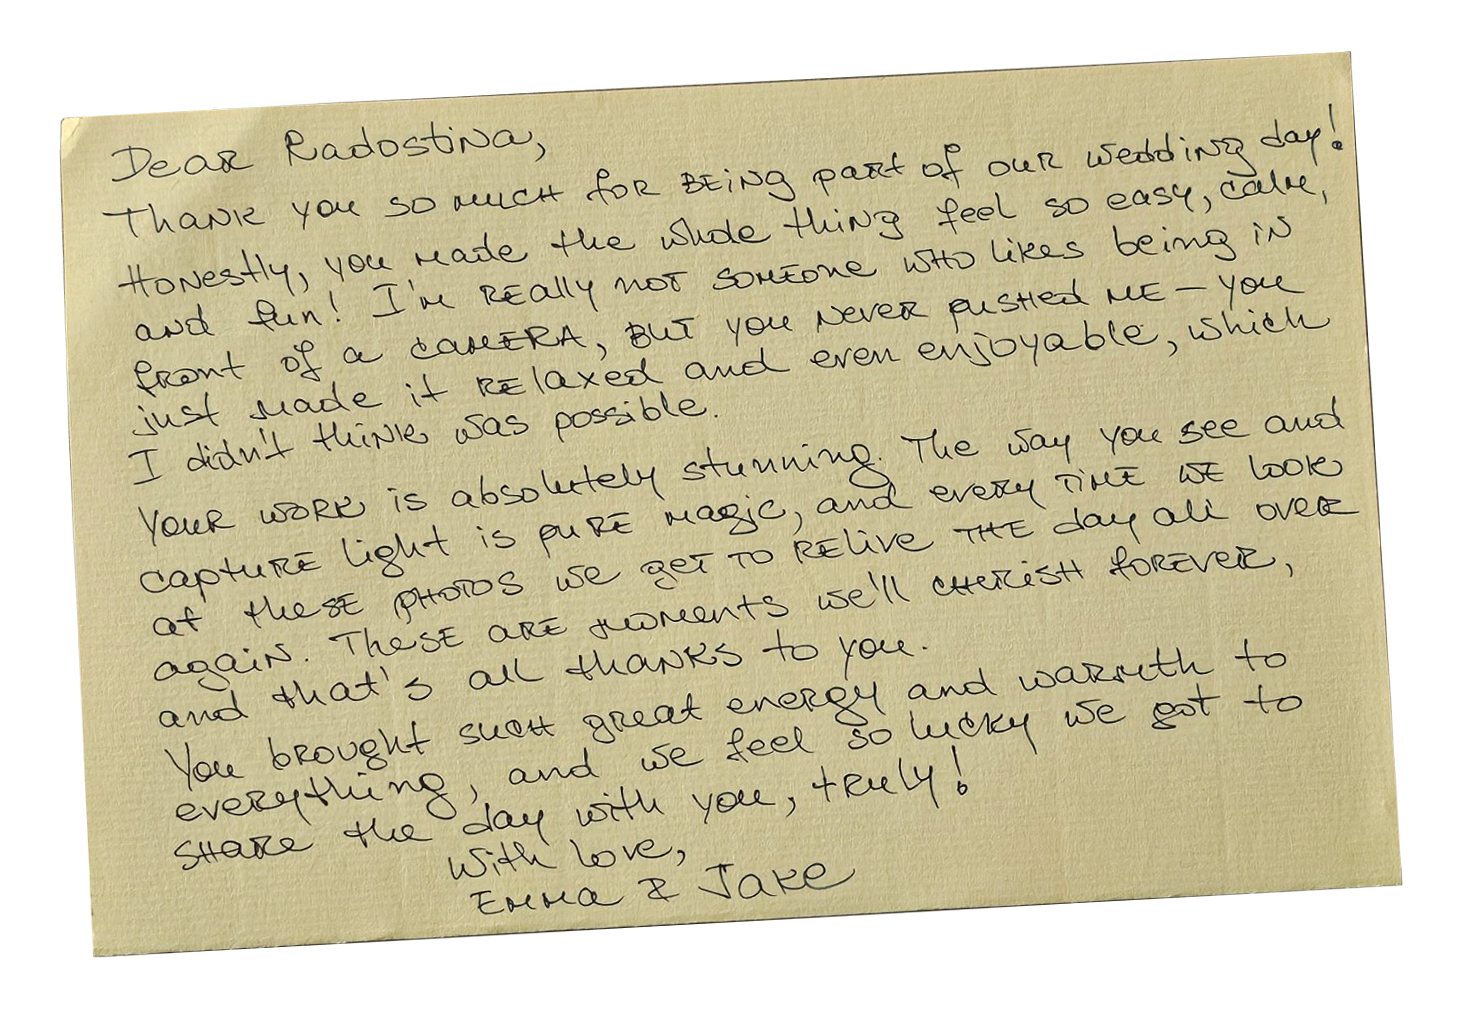 Dear Radostina,
Thank you so much for being part of our wedding day!
Honestly, you made the whole thing feel so easy, calm,
and fun! I'm really not someone who likes being in
front of a camera, but you never pushed me — you
just made it relaxed and even enjoyable, which
I didn't think was possible.
Your work is absolutely stunning. The way you see and
capture light is pure magic, and every time we look
at these photos we get to relive the day all over
again. These are moments we'll cherish forever,
and that's all thanks to you.
You brought such great energy and warmth to
everything, and we feel so lucky we got to
share the day with you, truly!
With love,
Emma & Jake